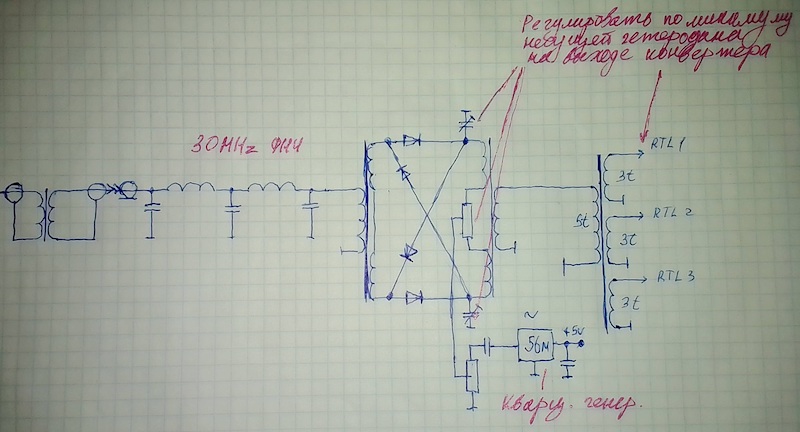 Регулировать по минимуму
несущей гетеродина
на выходе конвертера
30MHz ФНЧ
RTL 1
3t
5t
RTL 2
3t
RTL 3
3t
~
56м
+5v
Кварц. генер.